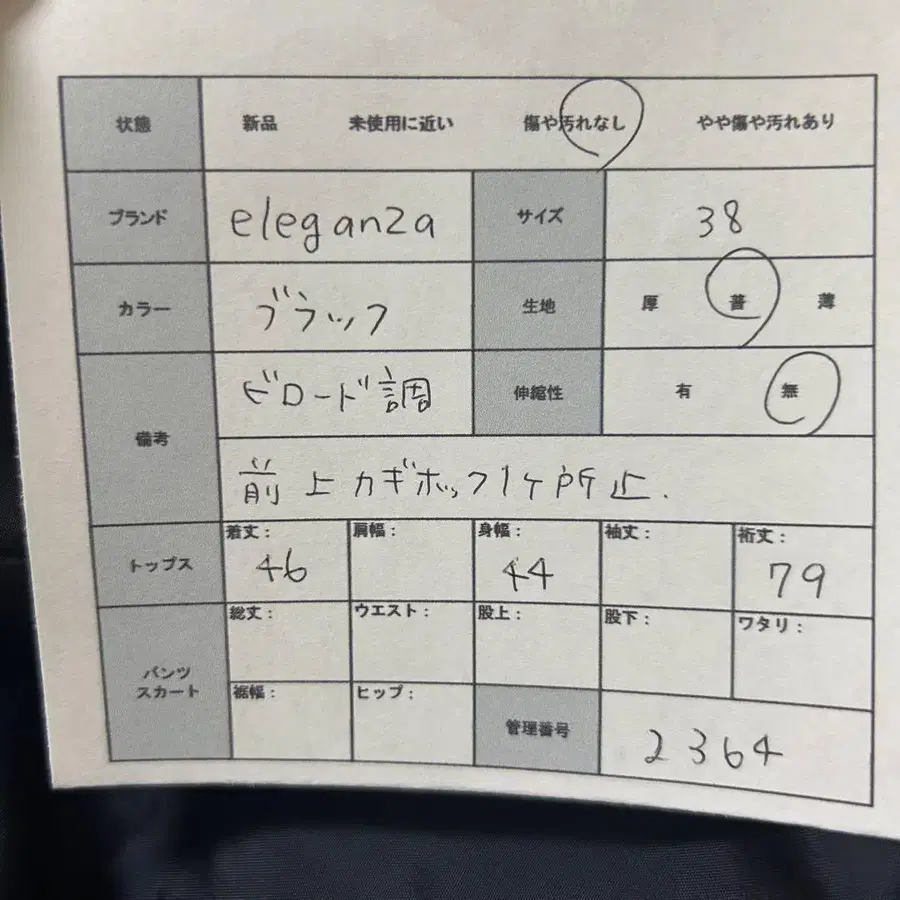 状態 新品 未使用に近い 傷や汚れなし やや傷や汚れあり
ブランド eleganza サイズ 38
カラー ブラック 生地 厚 普 薄
備考 ビロード調 伸縮性 有 無
前上カギホック1ケ所止.
トップス 着丈: 46 肩幅: 身幅: 44 袖丈: 裄丈: 79
パンツ スカート 総丈: ウエスト: 股上: 股下: ワタリ:
裾幅: ヒップ: 管理番号 2364